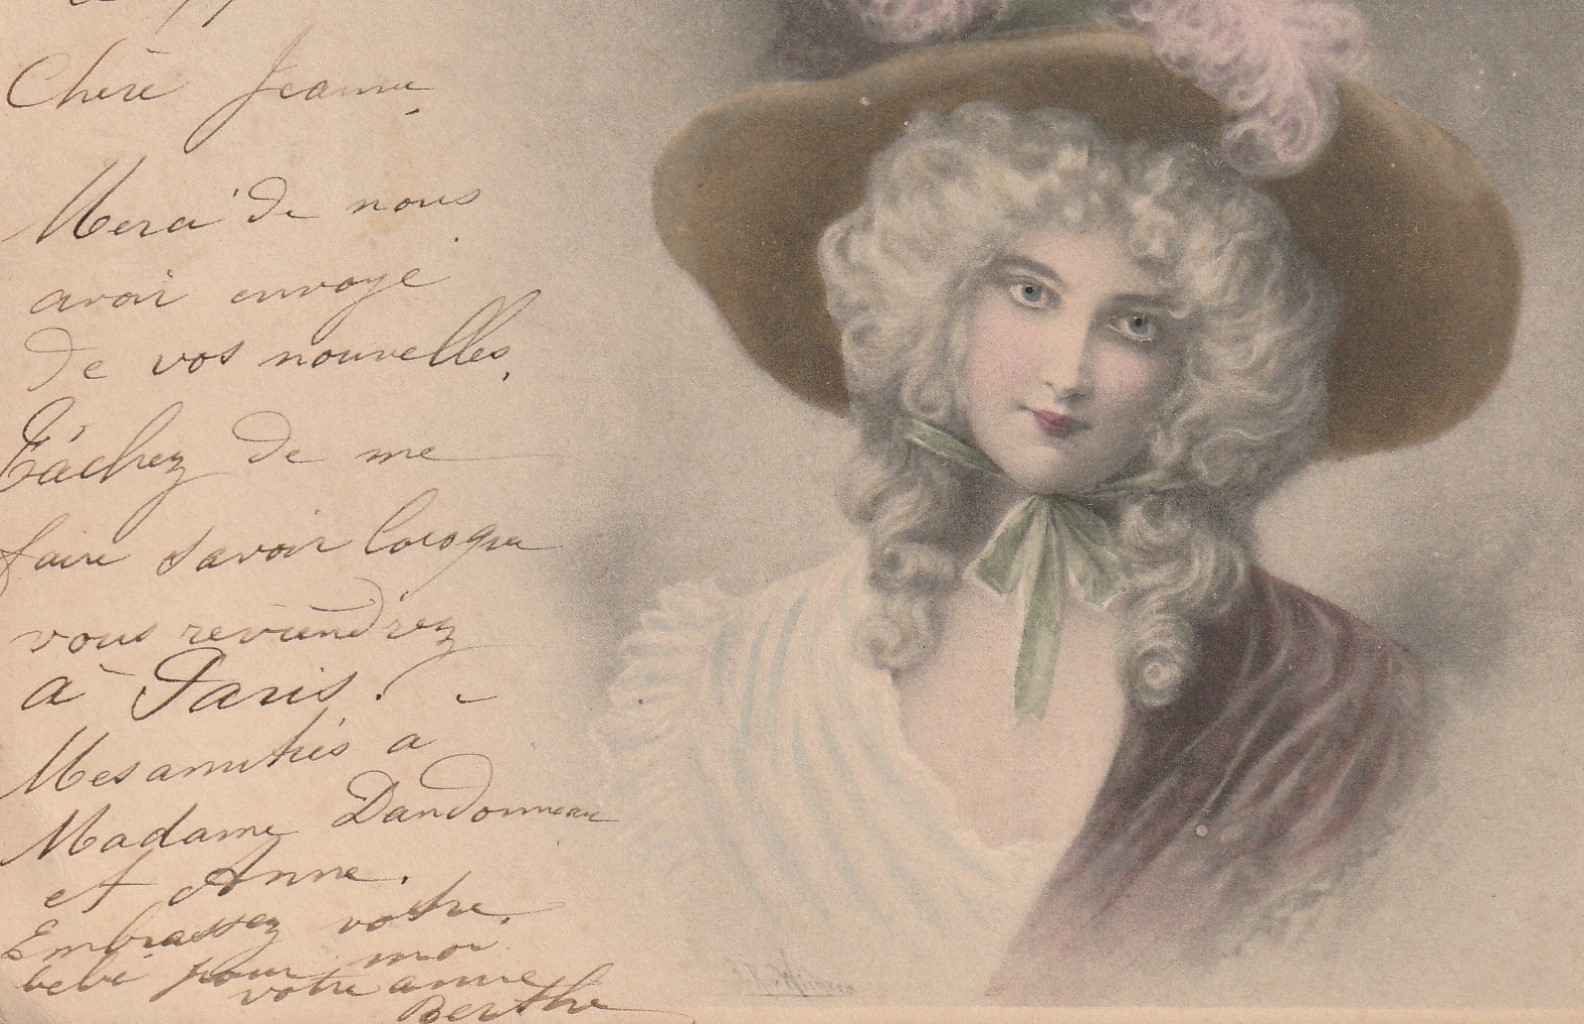 Chère Jeanne,
Merci de nous
avoir envoyé
de vos nouvelles.
Tâchez de me
faire savoir lorsque
vous reviendrez
à Paris.
Mes amitiés a
Madame Dandonneau
et Anne.
Embrassez votre
bebé pour moi.
votre amie
Berthe